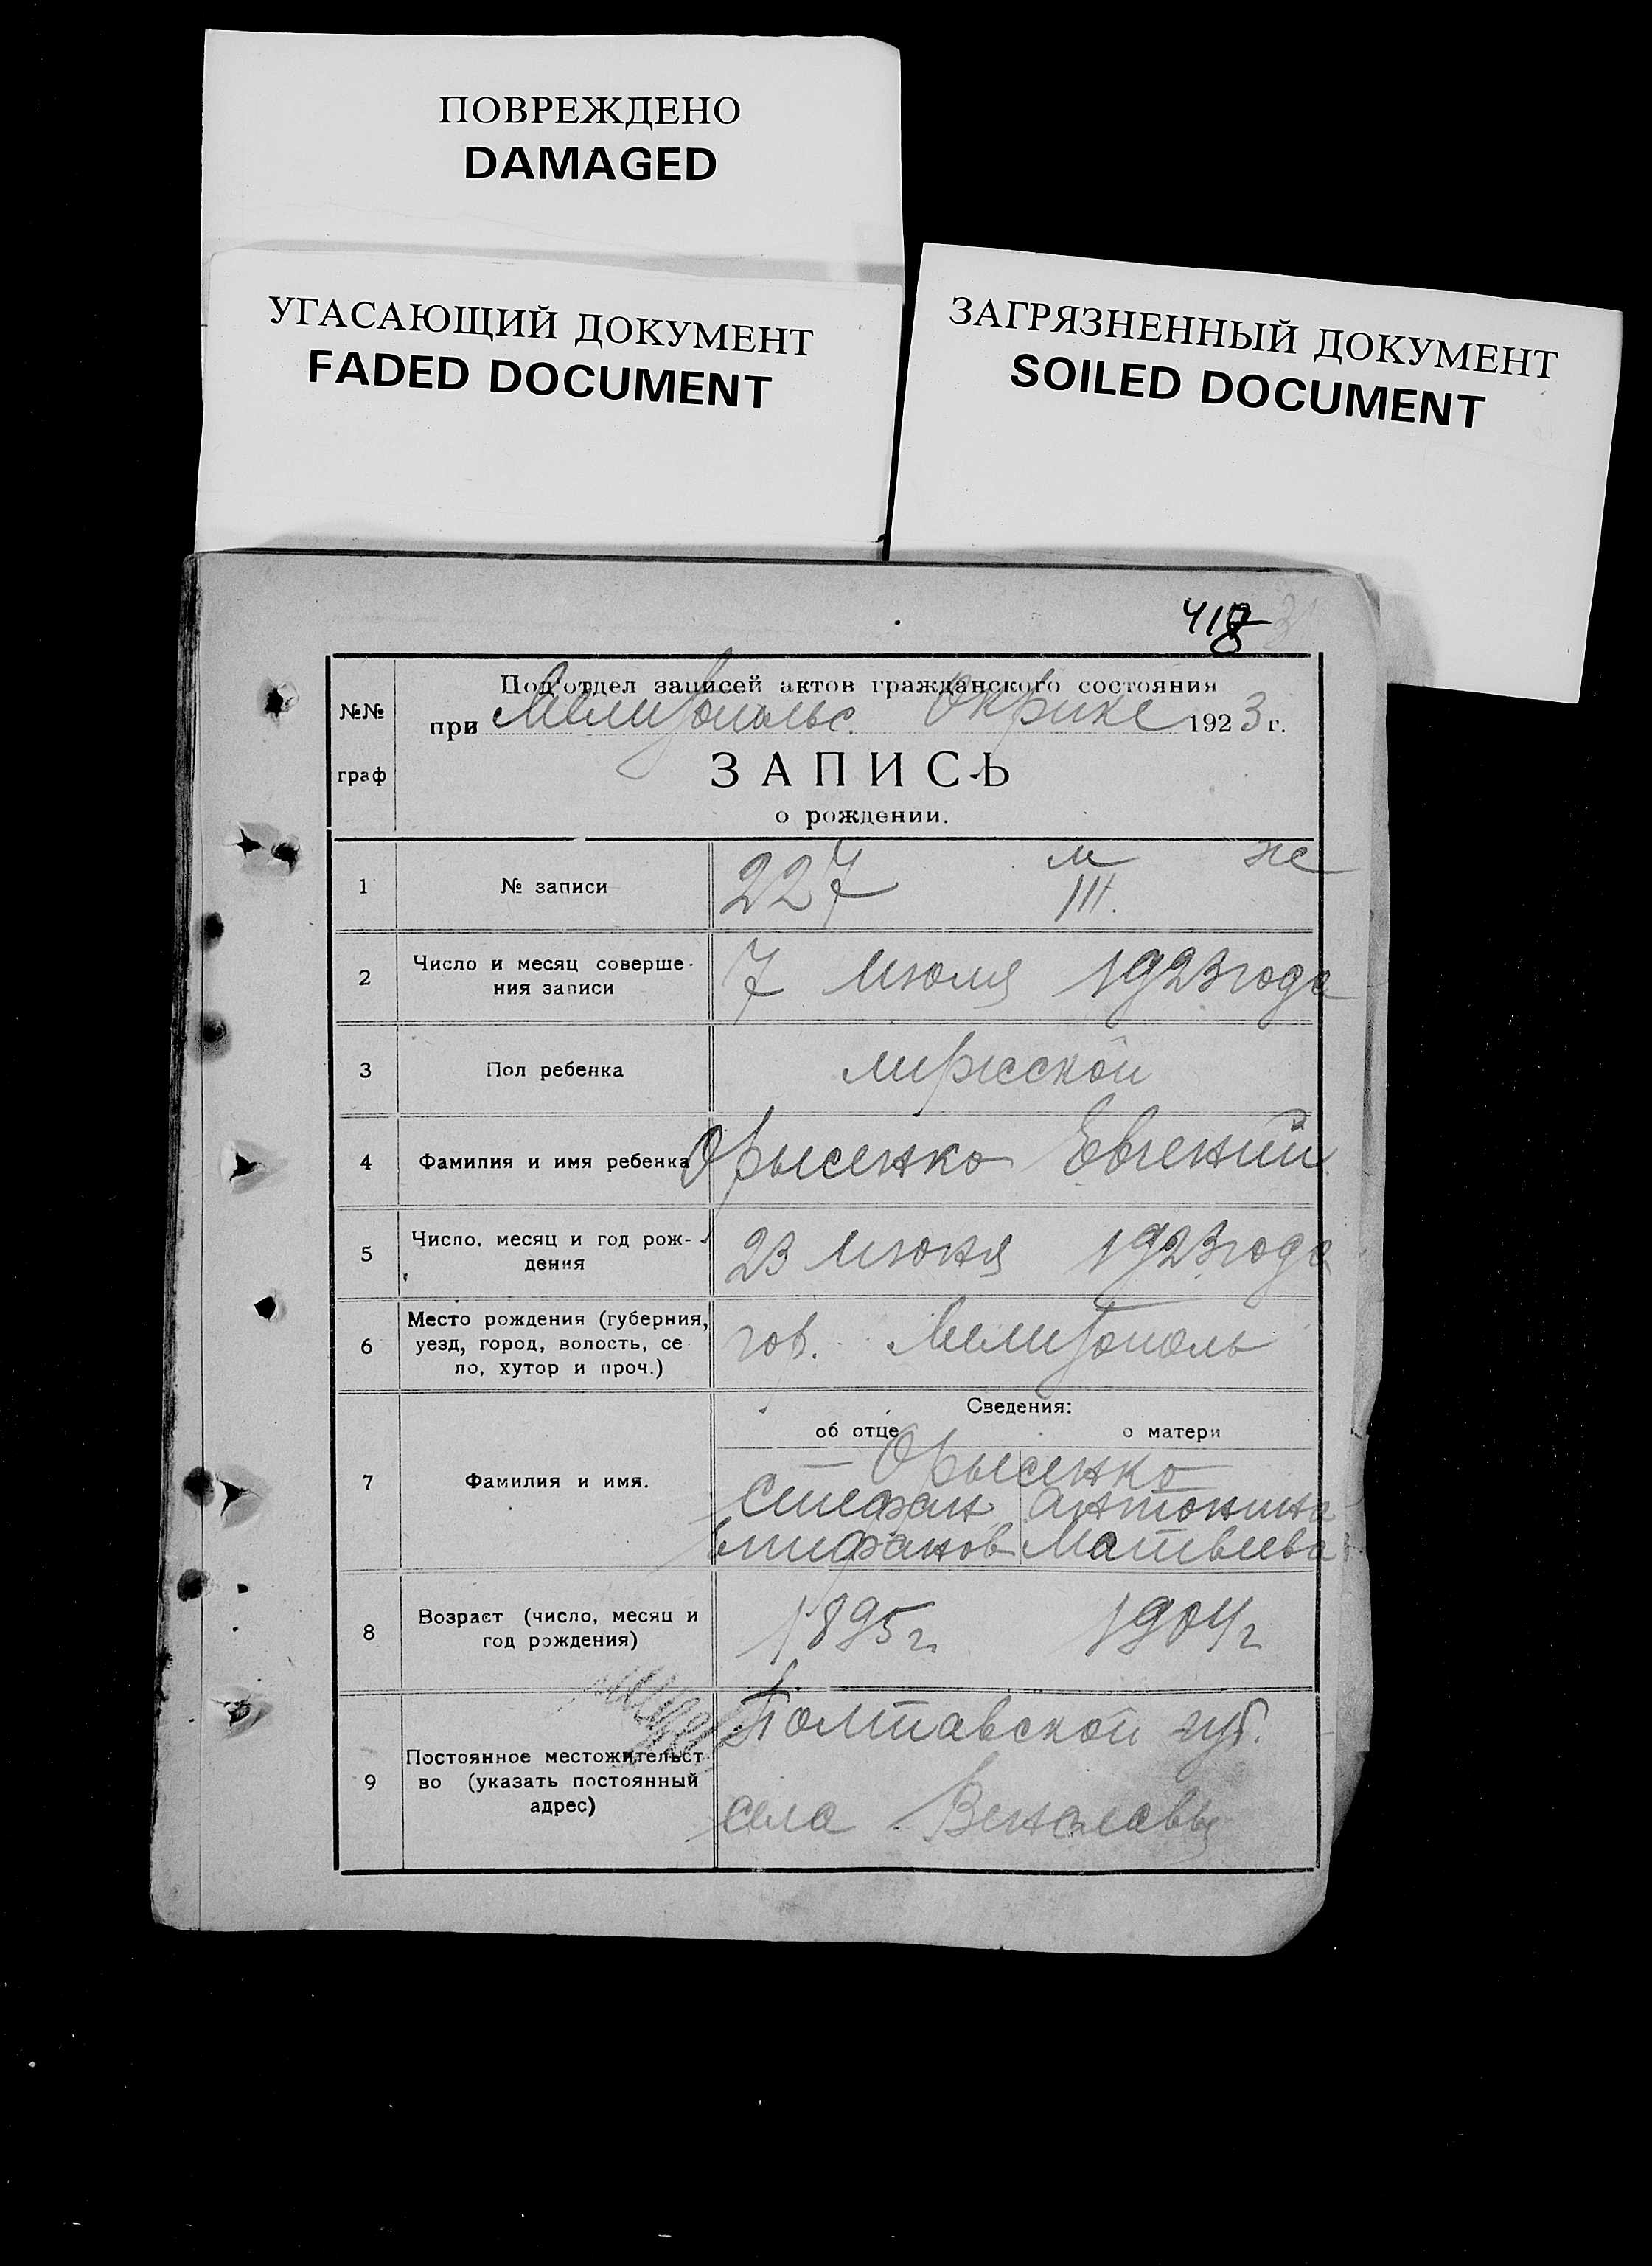 ПОВРЕЖДЕНО
DAMAGED
УГАСАЮЩИЙ ДОКУМЕНТ
FADED DOCUMENT
ЗАГРЯЗНЕННЫЙ ДОКУМЕНТ
SOILED DOCUMENT
418
№№ граф
Под'отдел записей актов гражданского состояния
при Мелитопольс. Окрике 1923 г.
ЗАПИСЬ
о рождении.
1 № записи 227 м III. ж
2 Число и месяц соверше-
ния записи 7 июля 1923 года
3 Пол ребенка мужской
4 Фамилия и имя ребенка Орысенко Евгений
5 Число, месяц и год рож-
дения 23 июня 1923 года
6 Место рождения (губерния,
уезд, город, волость, се
ло, хутор и проч.) гор. Мелитополь
Сведения:
об отце о матери
7 Фамилия и имя. Орысенко
Стефан Антонина
Епифанов Матвеева
8 Возраст (число, месяц и
год рождения) 1895 г. 1904 г
9 Постоянное местожительст
во (указать постоянный
адрес) Полтавской губ.
села